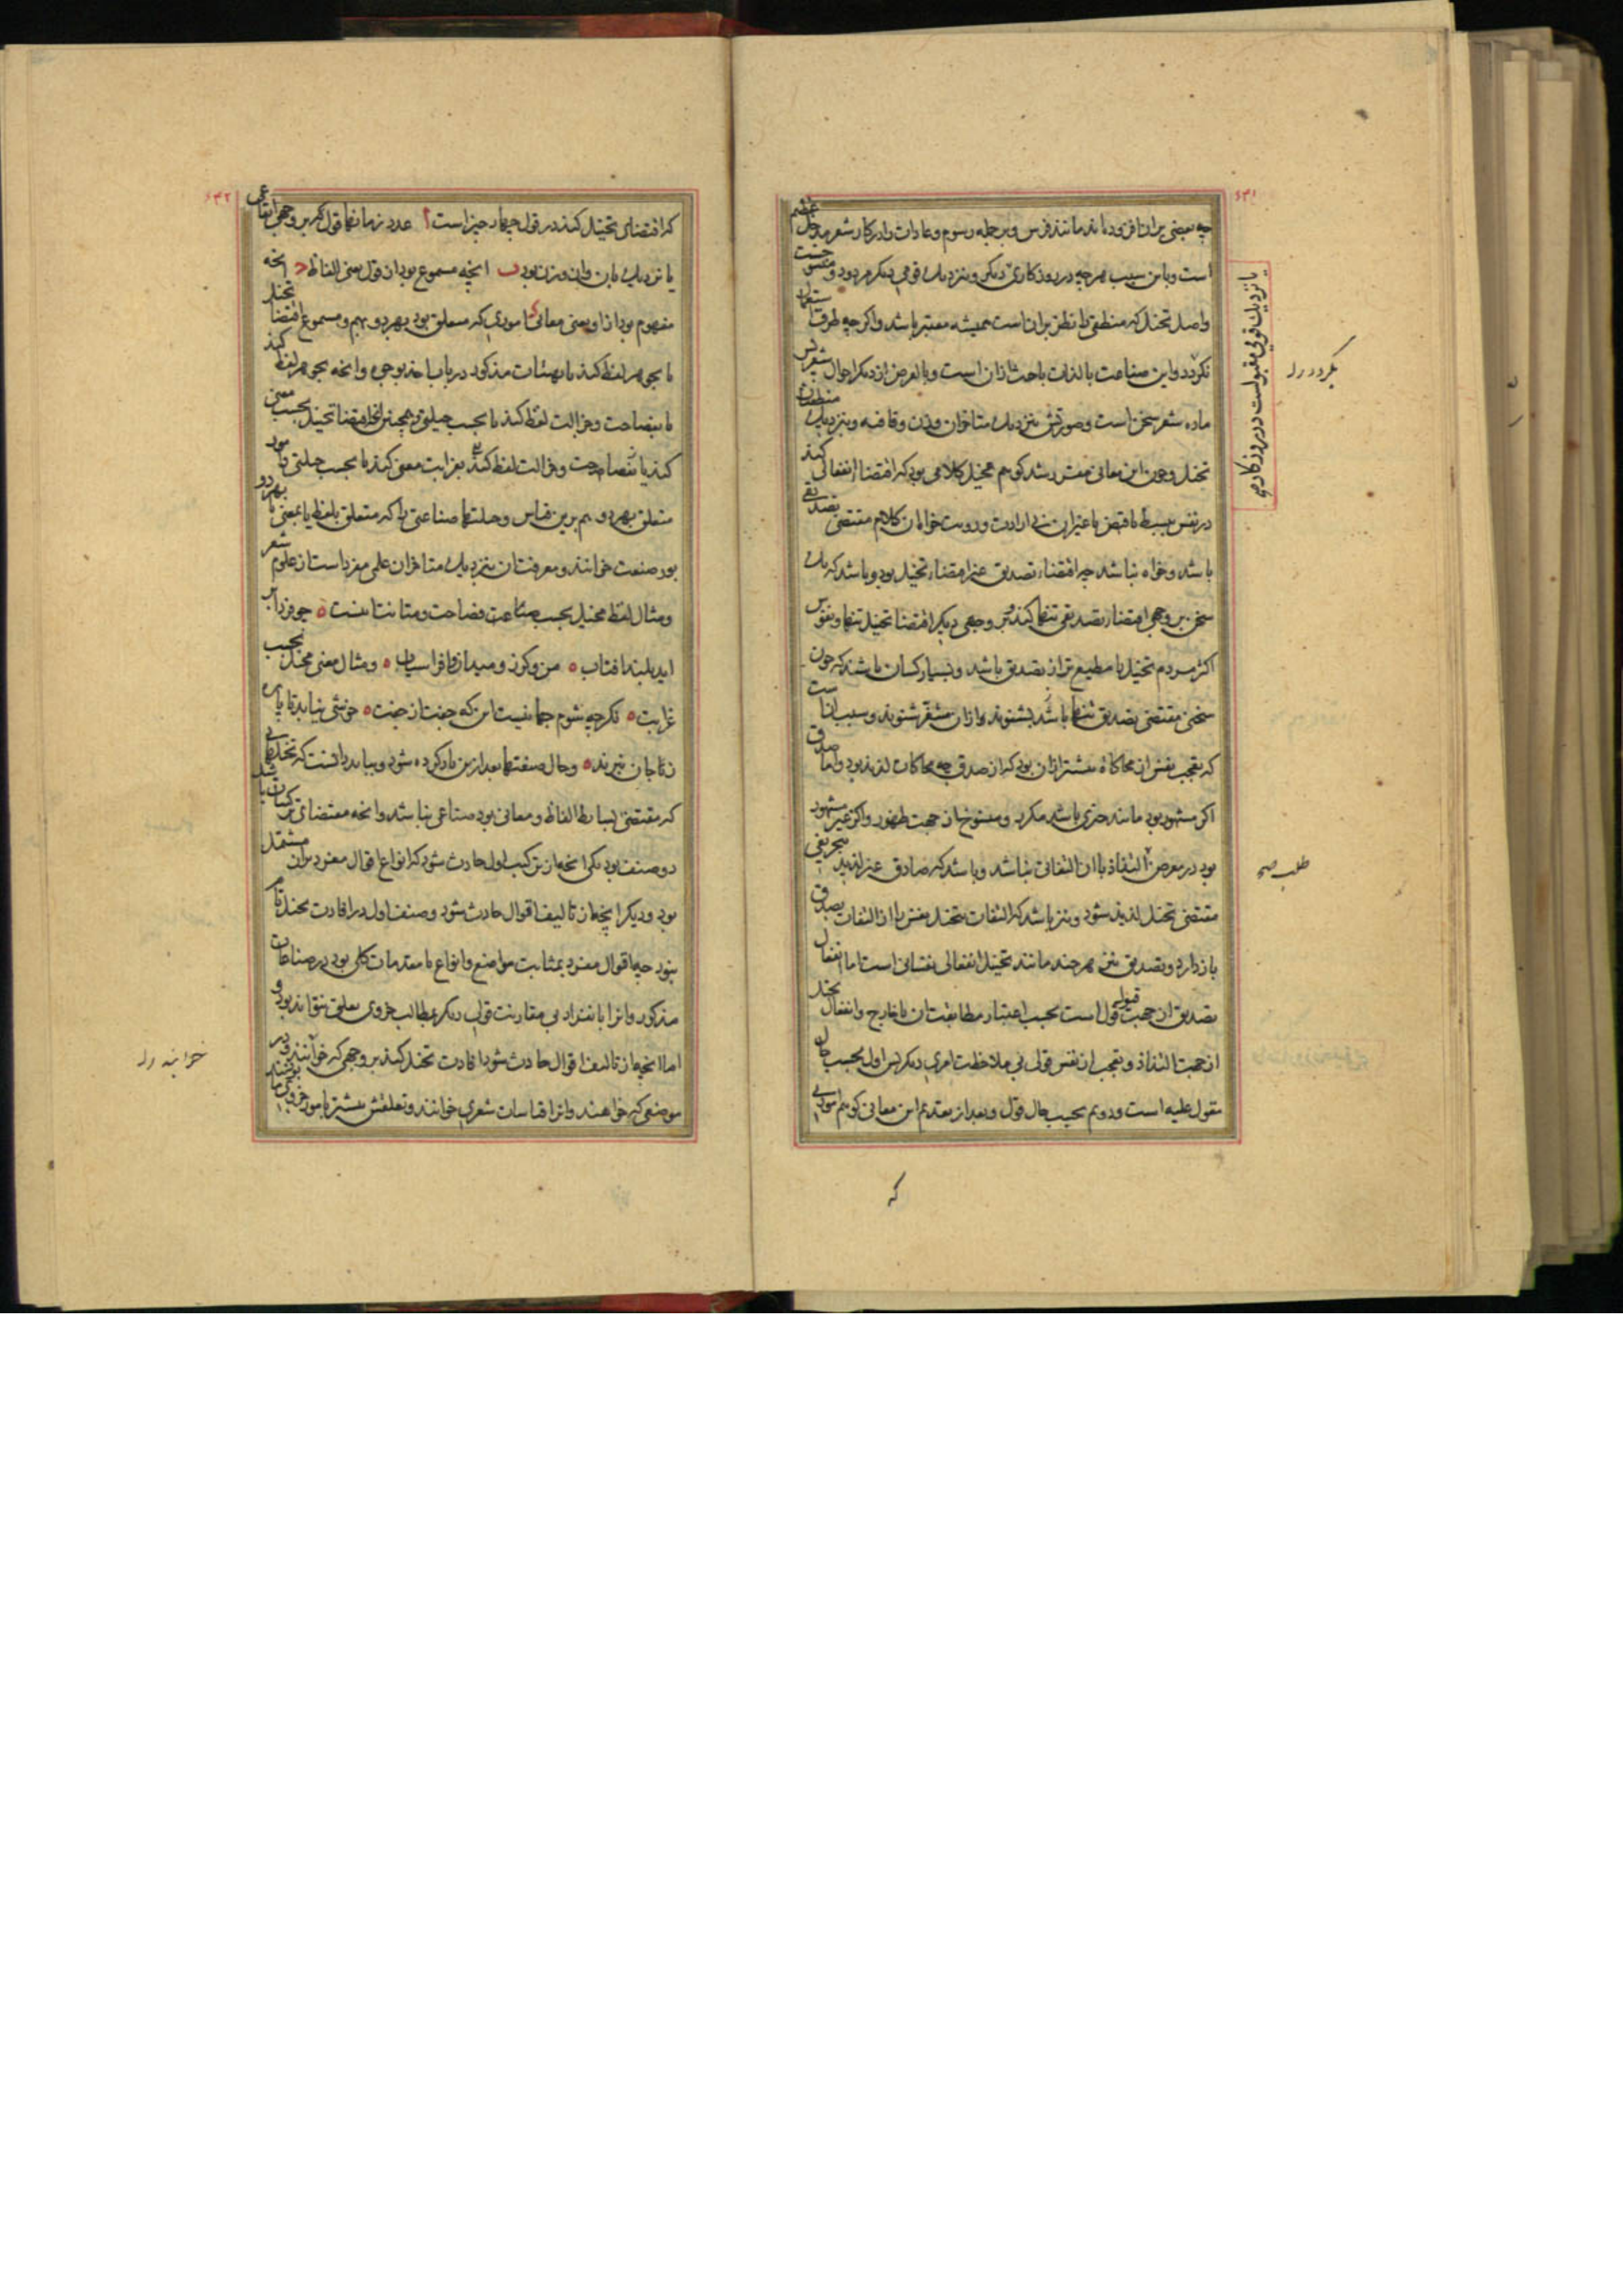 ۶۳۱
چه بعضی بران افزوده‌اند مانند فرس و بر جمله رسوم و عادات را در کار شعر مدخلی عظیم
است و باین سبب هرچه در روزکاری
یا نزدیک قومی مقبولست در روزکاری
دیکر و بنزدیک قومی دیکر مردود و منسوخست
واصل تخیل که منطقی را نظر بران است همیشه معتبر باشد واکرچه طرق استعمال
بکردد
نکردد واین صناعت بالذات باحث ازان است وبالعرض از دیکر احوال شعر پس
ماده شعر سخن است وصورتش بنزدیک متاخران وزن وقافیه وبنزدیک منطقیان
تخیل وچون این معانی مقرر شد کوییم مخیل کلامی بود که اقتضاء انفعالی کند
در نفس ببسط یا قبض یا غیر این بی ارادت ورویت خواه ان کلام مقتضی تصدیقی
باشد وخواه نباشد چه اقتضاء تصدیق غیر اقتضاء تخیل بود وباشد که یک
سخن بر وجهی اقتضاء تصدیقی تنها کند وبر وجهی دیکر اقتضاء تخیل تنها ونفوس
اکثر مردم تخیل را مطیع‌تر از تصدیق باشد وبسیار کسان باشند که چون
سخنی مقتضی تصدیق تنها باشد بشنوند وازان متنفر شوند وسبب انست
که تعجب نفس از محاکاة بیشتر ازان بود که از صدق چه محاکات لذیذ بود واما صدق
اکر مشهور بود مانند چیزی باشد مکرر ومنسوخ از جهت ظهور واکر غیر مشهور
بود در معرض التذاذ باان التفاتی نباشد وباشد که صادق غیر لذیذ بتحریفی
طلب صح
مقتضی تخیل لذیذ شود ونیز باشد که التفات بتخیل نفس را از التفات بصدق
بازدارد وتصدیق نیز هرچند مانند تخیل انفعالی نفسانی است اما انفعال
تصدیق از جهت قبول قول است بحسب اعتبار مطابقت ان با خارج وانفعال تخیل
از جهت التذاذ وتعجب از نفس قول بی ملاحظت امری دیکر پس اول بحسب حال
مقول علیه است ودویم بحسب حال قول وبعد از تقدیم این معانی کوییم اموری
که
۶۳۲
که اقتضای تخیل کند در قول چهار چیز است ا عدد زمانهاء قول که بر وجهی ایقاعی
یا نزدیک بان وان وزن بود ب انچه مسموع بود ازان قول یعنی الفاظ ح انچه
مفهوم بود ازاو یعنی معانی د اموری که متعلق بود بهر دو بهم ومسموع اقتضاء تخیل
یا بجوهر لفظ کند یا بهیئات مذکور در باب اخذ بوجوه وانچه بجوهر لفظ کند
یا بفصاحت وجزالت لفظ کند یا بحسب حیلتی وهمچنین انچه اقتضاء تخیل بحسب معنی
کند یا بفصاحت وجزالت لفظ کند یا بغرابت معنی کند یا بحسب حیلتی وامور
متعلق بهر دو هم برین قیاس وحیلتها صناعتی را که متعلق بلفظ یا بمعنی یا بهر دو
بود صنعت خوانند ومعرفت ان بنزدیک متاخران علمی مفرد است از علوم شعر
ومثال لفظ مخیل بحسب صناعت فصاحت ومتانت اینست ه چو فردا بر
اید بلند افتاب ه من وکرز ومیدان وافراسیاب ه ومثال معنی مخیل بحسب
غرابت ه کرچه شوم جا نیست این که جفت از جفت ه خوشی نیابد تا پای
زتا جان نبرند ه وحال صنعتها بعد ازین یاد کرده شود وبباید دانست که تخیلهایی
که مقتضی بسایط الفاظ ومعانی بود صناعی نباشد وانچه مقتضای ترکیبات باشد
دو صنف بود یکی انچه از ترکیب اول حادث شود که انواع اقوال مفرد بران مشتمل
بود ودیکر انچه از تالیف اقوال حادث شود وصنف اول در افادت تخیل تام
نبود چه اقوال مفرد بمثابت مواضع وانواع یا مقدمات کلی بود در صناعات
مذکور وانرا بانفراد بی مقارنت قولی دیکر بمطالب جزوی تعلقی نتواند بود و
اما انچه از تالیف اقوال حادث شود افادت تخیل کند بر وجهی که خوانند ودر
موضعی که خواهند وانرا قیاسات شعری خوانند وتعلقش بیشتر بامور جزوی